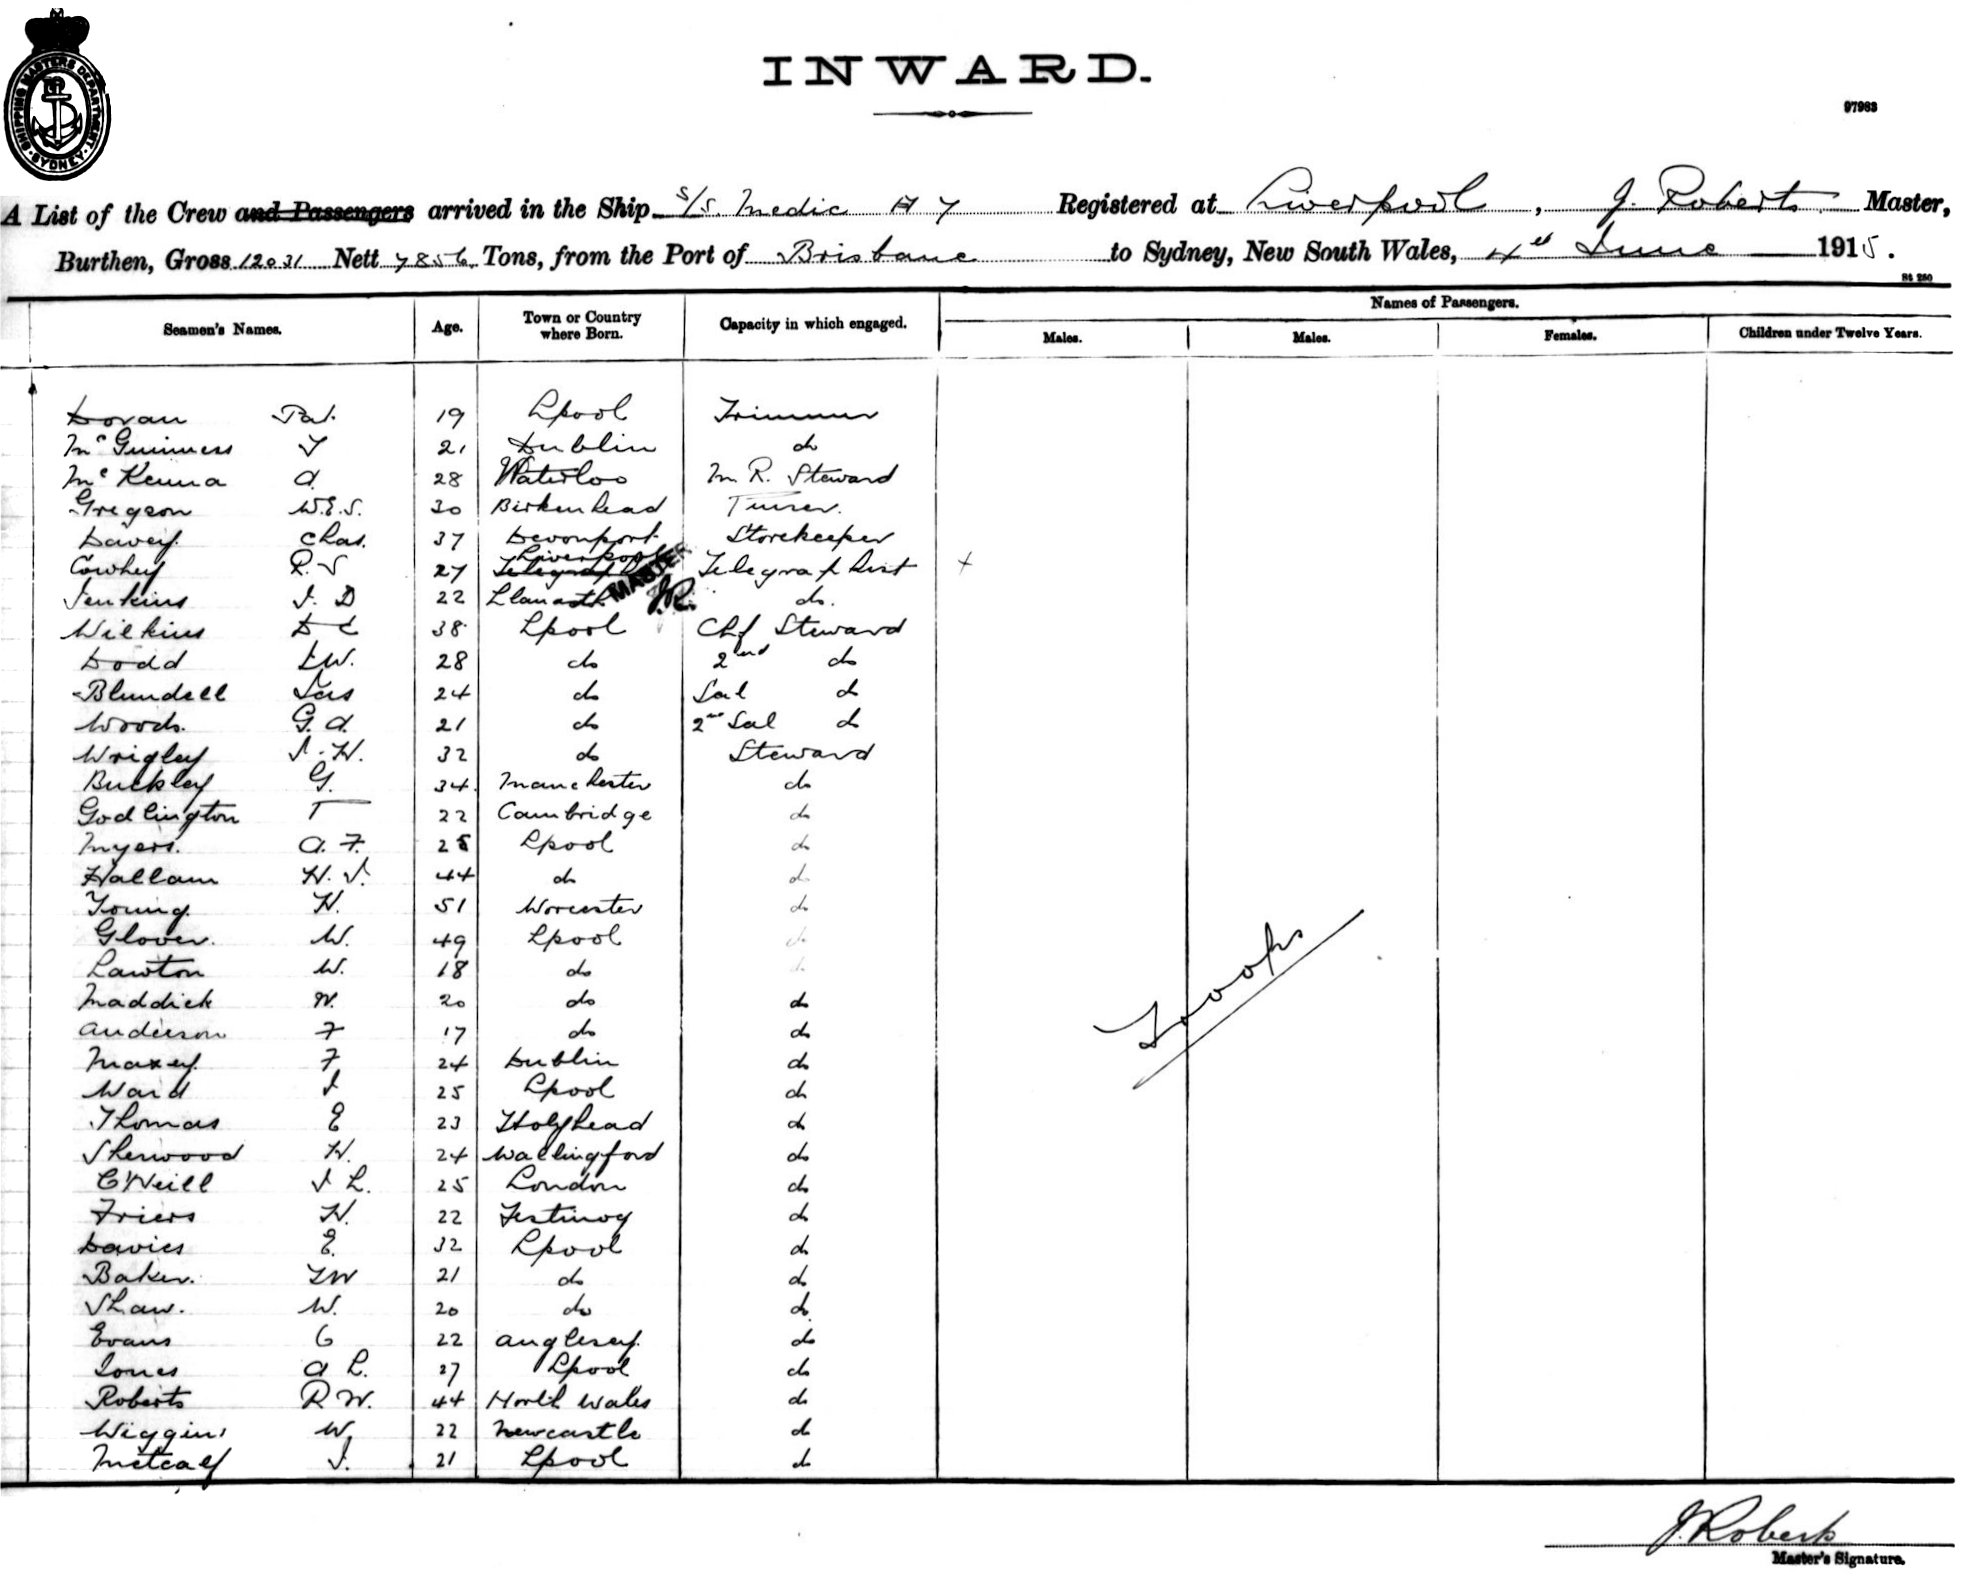 SHIPPING MASTERS DEPARTMENT SYDNEY
INWARD.
97983
A List of the Crew and Passengers arrived in the Ship S/S. Medic A 7 Registered at Liverpool, J. Roberts Master,
Burthen, Gross 12031 Nett 7856 Tons, from the Port of Brisbane to Sydney, New South Wales, 4th June 1915.
St 260
Seamen's Names. Age. Town or Country where Born. Capacity in which engaged. Names of Passengers.
Males. Males. Females. Children under Twelve Years.
Doran Pat. 19 Lpool Trimmer
McGuinness 21 Dublin do
McKenna A. 28 Waterloo M. R. Steward
Gregson W.E.S. 30 Birkenhead
Davey Chas. 37 Devonport Storekeeper
Cowhey R. S 27 Liverpool Telegraphist +
MASTER J.R.
Jenkins J. D 22 Llanarth do.
Wilkins D C 38 Lpool Chf Steward
Dodd 28 do 2nd do
Blundell Jas 24 do Sal do
Woods. G. A. 21 do 2nd Sal do
Wrigley J. H. 32 do Steward
Buckley G. 34 Manchester do
Godlington T 22 Cambridge do
Myers. A. F. 25 Lpool do
Hallam H. J. 44 do do
Young H. 51 Worcester do
Glover. W. 49 Lpool do
Lawton W. 18 do do
Maddick W. 20 do do
Anderson F 17 do do
Maxey F 24 Dublin do
Ward J 25 Lpool do
Thomas E 23 Holyhead do
Sherwood H. 24 Wallingford do
O'Neill J L. 25 London do
Friers H. 22 Festiniog do
Davies E. 32 Lpool do
Baker. 21 do do
Shaw. W. 20 do do
Evans G 22 Anglesey. do
Jones A L. 27 Lpool do
Roberts R W. 44 North Wales do
Wiggins W. 22 Newcastle do
Metcalf J. 21 Lpool do
J. Roberts
Master's Signature.